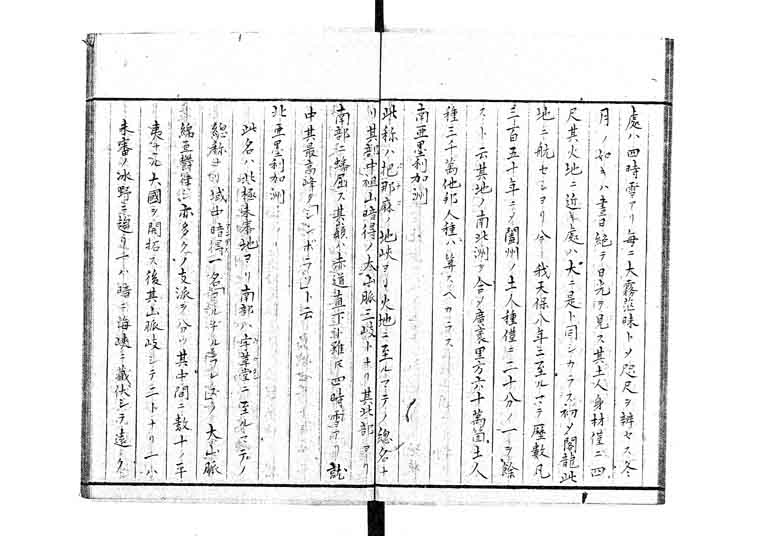 處ハ四時雪アリ毎ニ大霧茫昧トメ咫尺ヲ辨セス冬
月ノ如キハ晝日絶テ日光ヲ見ス其土人身材僅ニ四
尺其火地ニ近キ處ハ大ニ是ト同シカラス初メ閣龍此
地ニ航セシヨリ今我天保八年ニ至ルマテ歴數凡
三百五十年ニメ闔州ノ土人種僅ニ二十分ノ一ヲ餘
スト云其地ノ南北洲ヲ合メ廣袤里方六十萬箇土人
種三千萬他邦人種ハ算スヘカラス
南亜墨利加洲
此称ハ把那麻ノ地峽ヨリ火地ニ至ルマテノ總名ナ
リ其剖中祖山暗得ノ大山脈三岐トナリ其北部ヨリ
南部ニ蟠屈ス其巓ハ赤道直下ト雖モ四時雪アリ就
中其最高峰ヲシンボラソート云
北亜墨利加洲
此名ハ北極未審地ヨリ南部ハ
ニ至ルマテノ
總称ナリ域中暗得一名
大山脈
綿亘鬱律シ亦多クノ支派ヲ分ツ其中間ニ數十ノ平
夷ナル大國ヲ開拓ス後其山脈岐シテ二トナリ一ハ
未審ノ氷野ニ
一ハ暗ニ海峽ニ藏伏シテ遠ク